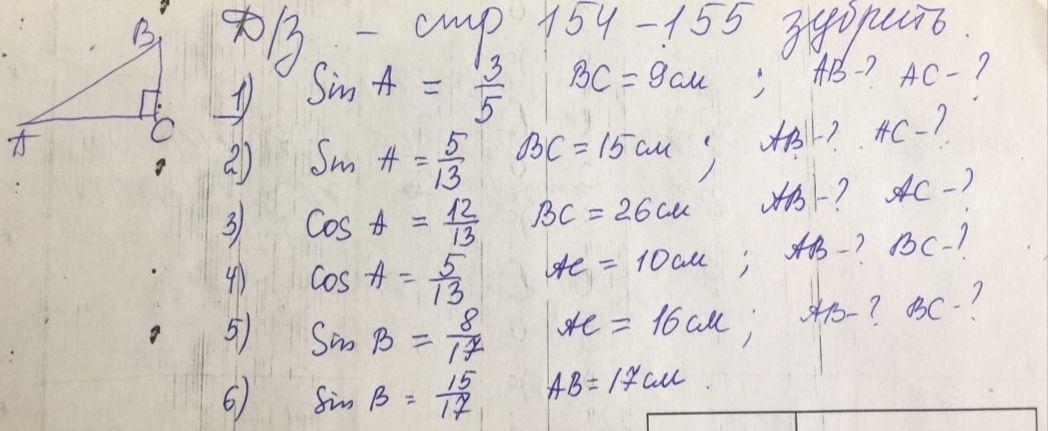 Д/З – стр 154–155 зубрить.
B
A
C
1) Sin A = 3/5 BC = 9см ; AB-? AC-?
2) Sin A = 5/13 BC = 15см ; AB-? AC-?
3) Cos A = 12/13 BC = 26см AB-? AC-?
4) Cos A = 5/13 AC = 10см ; AB-? BC-?
5) Sin B = 8/17 AC = 16см ; AB-? BC-?
6) Sin B = 15/17 AB = 17см .